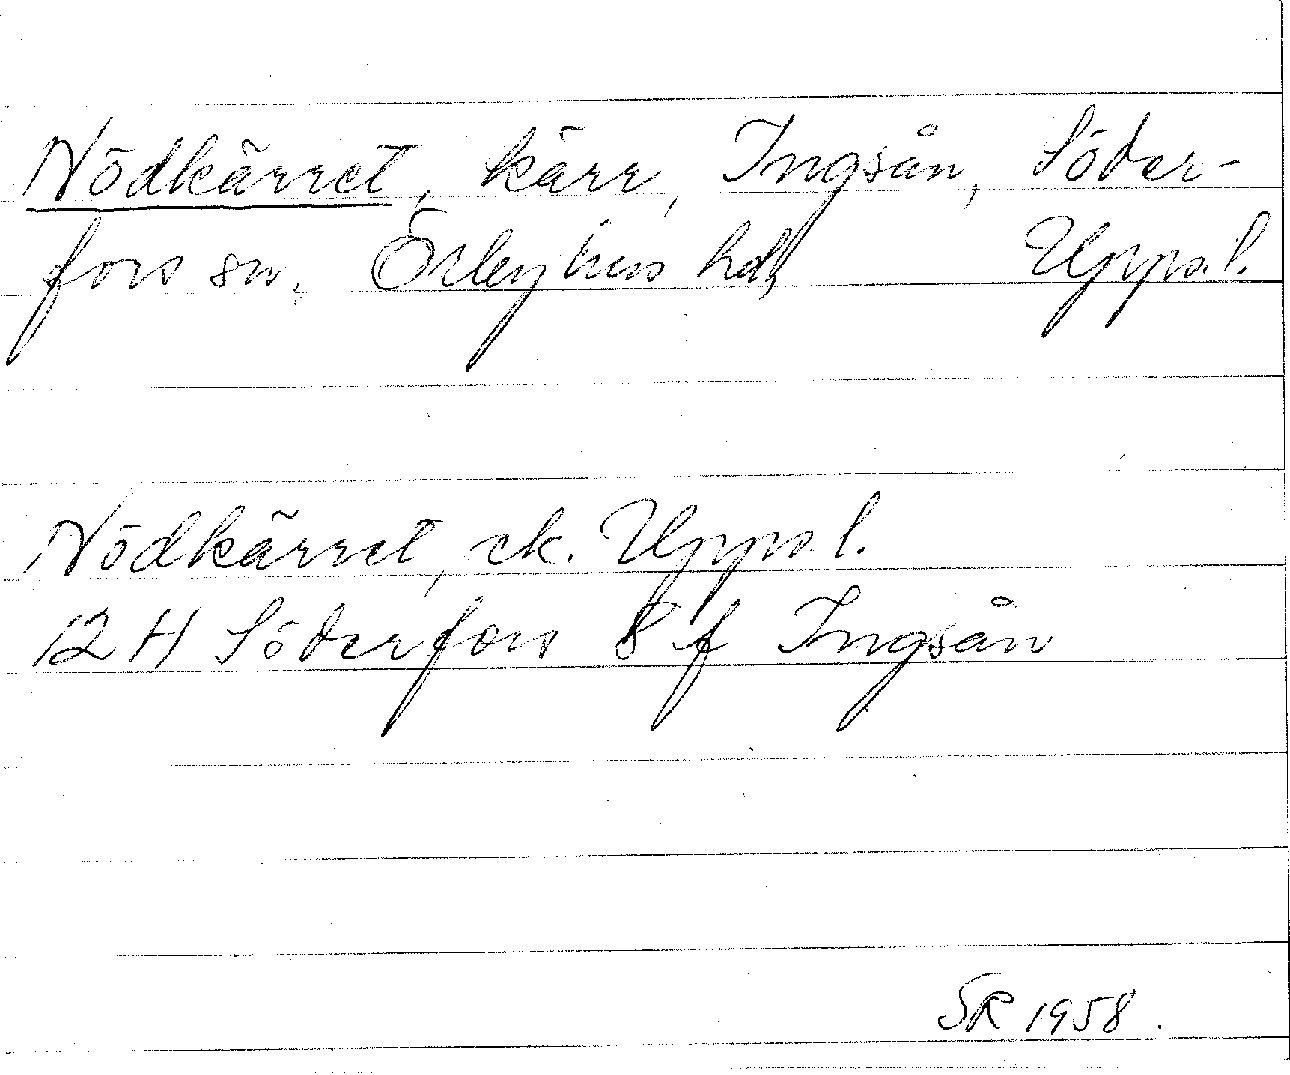 Nödkärret, kärr, Ingsån, Söder-
fors sn, Örbyhus hd, Upps. l.
Nödkärret, ek. Upps l.
12 H Söderfors 8 f Ingsån
SR 1958.